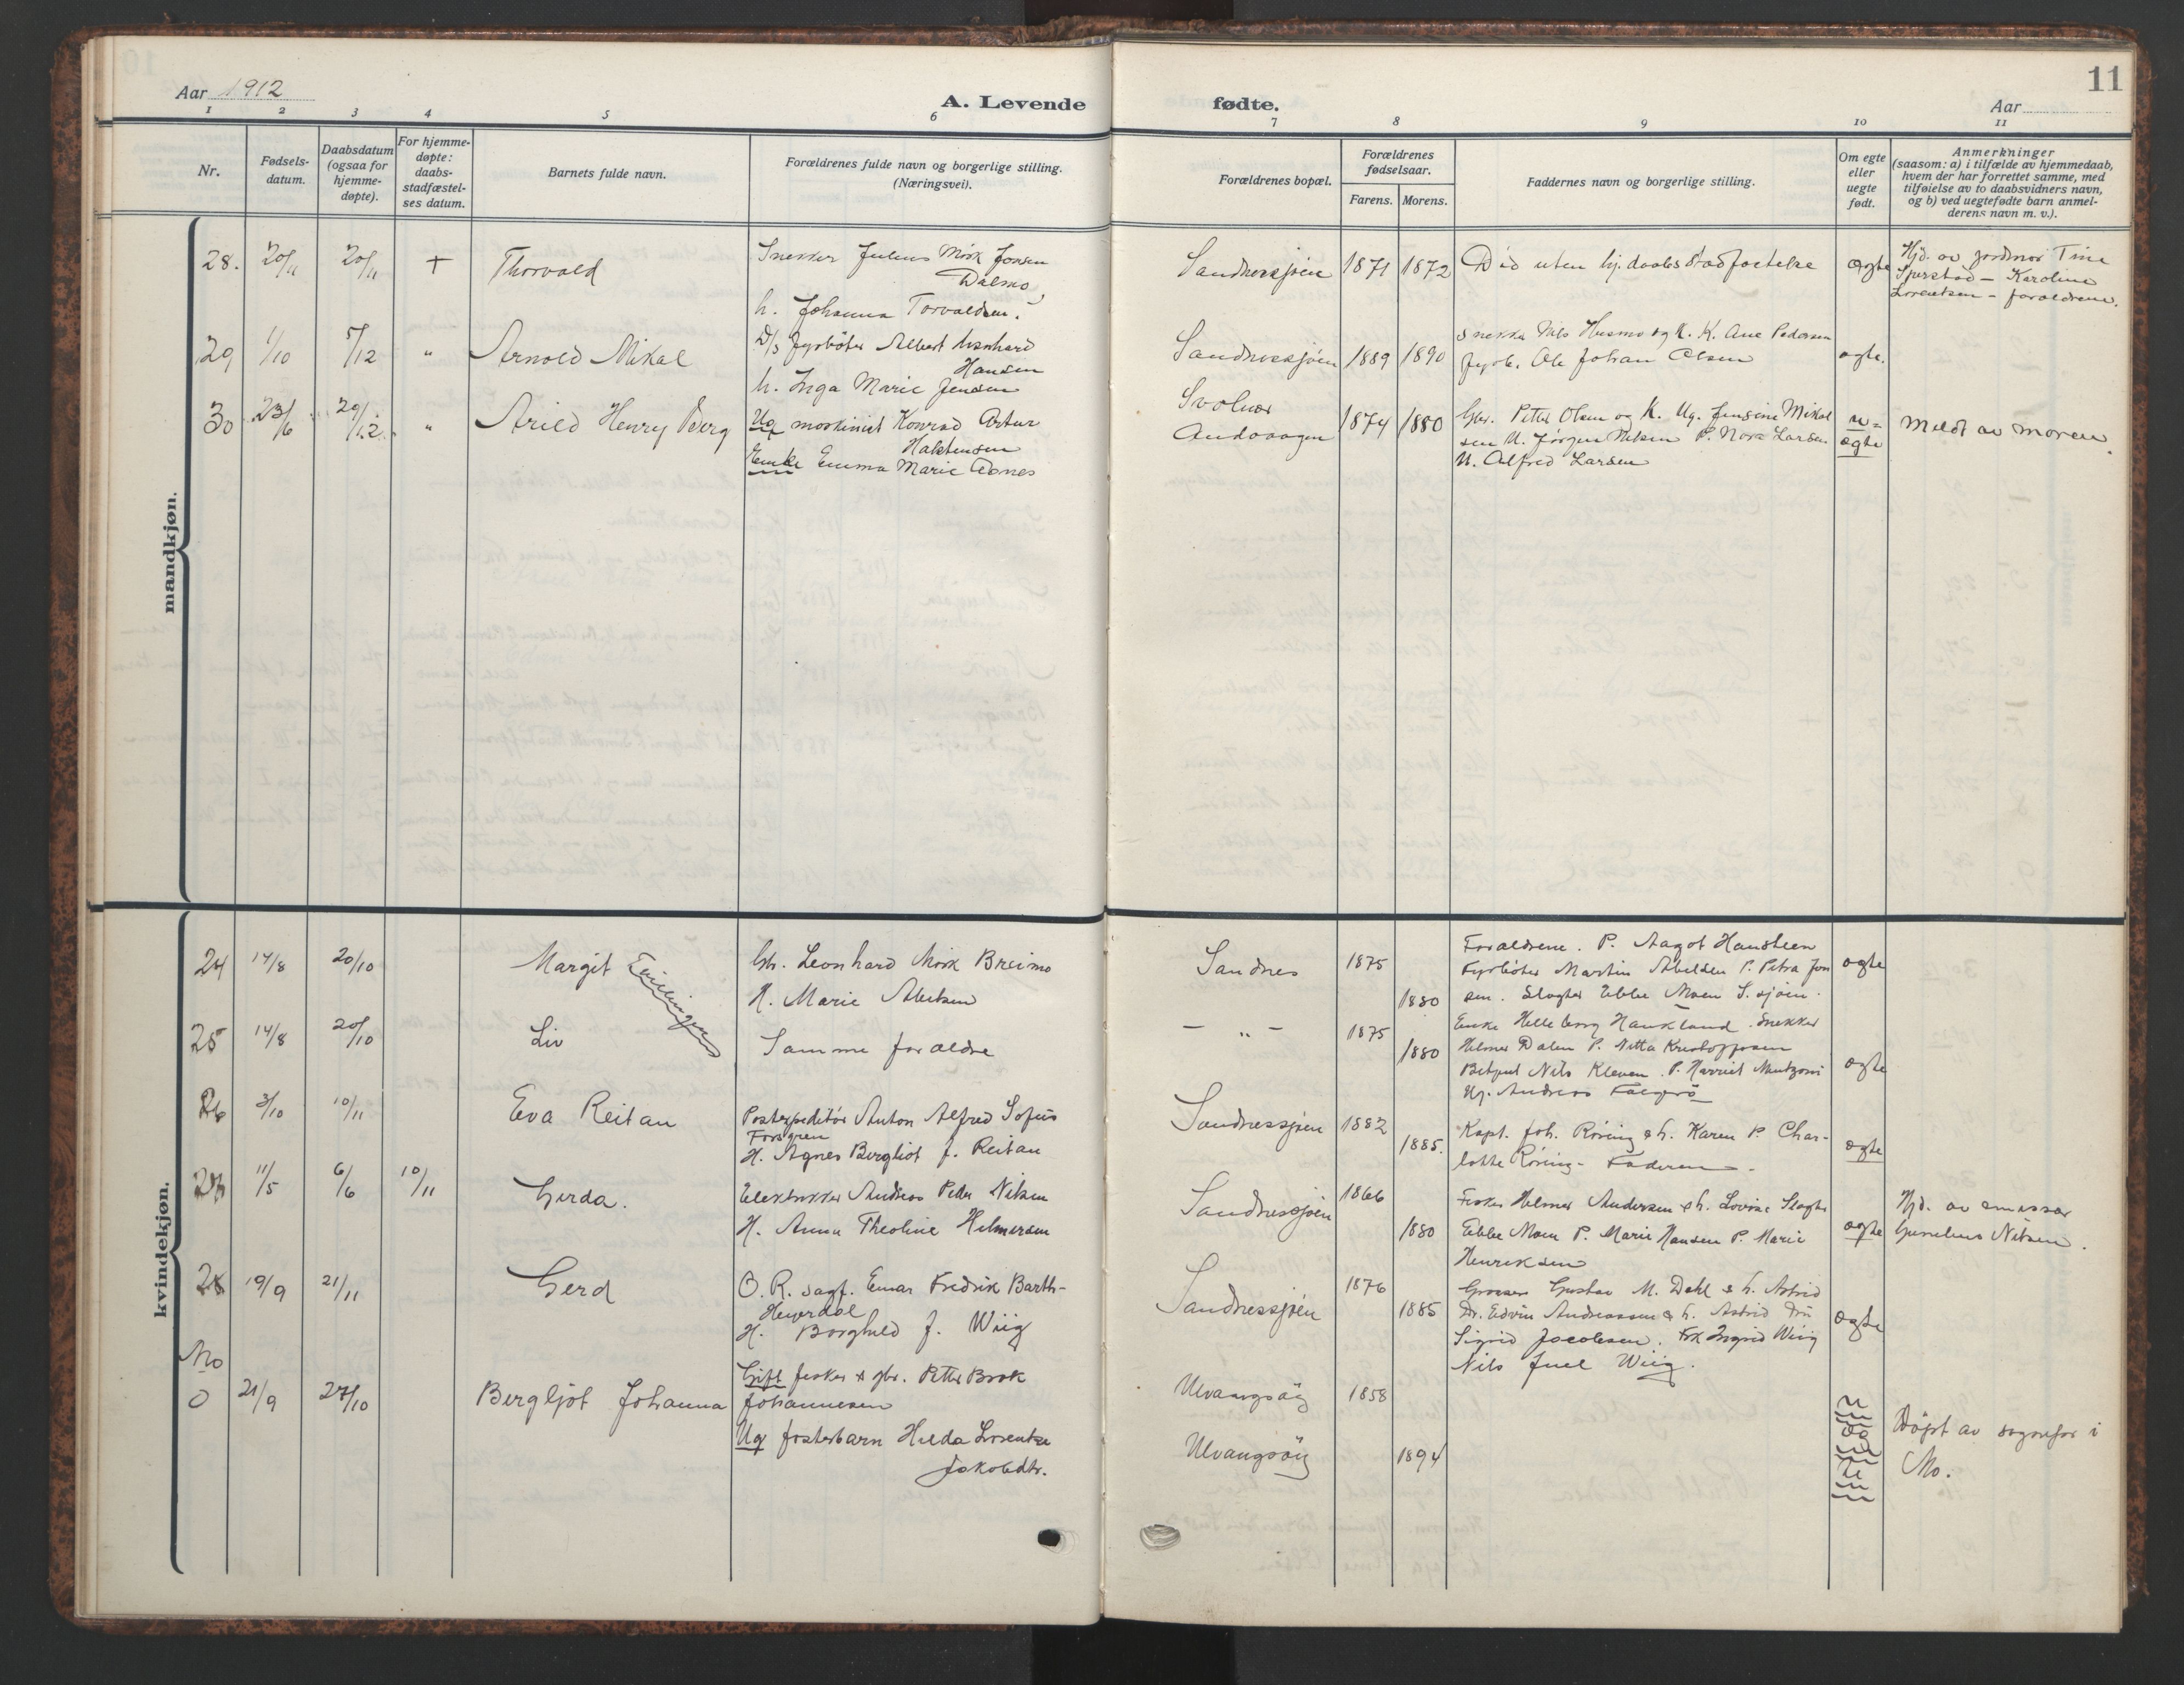 11
Aar 1912
A. Levende fødte.
Aar
1 2 3 4 5 6 7 8 9 10 11
Nr.
Fødsels-
datum.
Daabsdatum
(ogsaa for
hjemme-
døpte).
For hjemme-
døpte:
daabs-
stadfæstel-
ses datum.
Barnets fulde navn.
Forældrenes fulde navn og borgerlige stilling.
(Næringsvei).
Forældrenes bopæl.
Forældrenes
fødselsaar.
Farens. Morens.
Faddernes navn og borgerlige stilling.
Om egte
eller
uegte
født.
Anmerkninger
(saasom: a) i tilfælde av hjemmedaab,
hvem der har forrettet samme, med
tilføielse av to daabsvidners navn,
og b) ved uegtefødte barn anmel-
derens navn m. v.).
mandkjøn.
28. 20/11 20/11 + Thorvald
Snekker Julius Mörk Jonsen
Dalmo,
h. Johanna Torvaldsen.
Sandnessjöen 1871 1872
Död uten hj. daabs stadfæstelse
ægte
Hjd. av jordmor Tine
Sjurstad - Karoline
Lorentsen - forældrene.
29 1/10 5/12 " Arnold Mikal
D/s fyrböter Albert Leonhard
Hansen
h. Inga Marie Jensen
Sandnessjöen 1889 1890
Snekker Nils Husmo og K. K. Ane Pedersen
fyrb. Ole Johan Olsen
ægte.
30 23/6 29/12. " Arild Henry Berg
Ug maskinist Konrad Artur
Haktensen
Enke Emma Marie Agnes
Svolvær
1874 1880
Gbr. Petter Olsen og K. Ug. Jensine Mikal
sen U. Jörgen Nilsen P. Nora Larsen
U. Alfred Larsen
u=
ægte
Meldt av moren.
kvindekjøn.
24 14/8 20/10 Margit
Gbr. Leonhard Mörk Breimo
H. Marie Abelsen
Sandnes 1875
1880
Forældrene. P. Aagot Hansteen
Fyrböter Martin Abelsen P. Petra Jon
sen. Slagter Ebbe Moen S. sjöen.
ægte
25 14/8 20/10 Liv
Samme forældre
- " - 1875
1880
Enke Helleborg Haukland. Snekker
Helmer Dalen P. Nitta Kristoffersen
Nils Kleven. P. Harriet
Ug. Andreas
ægte
26 3/10 10/11 Eva Reitan
Postexpeditör Anton Alfred Sofus
Forsgren
H. Agnes Bergliot f. Reitan
Sandnessjöen 1882
1885.
Kapt. Joh. Röring & h. Karen P. Char-
lotte Röring - Faderen -
ægte
27 11/5 6/6 10/11 Gerda.
Elektriker Andreas Peder Nilsen
H. Anna Theoline Helmersen
Sandnessjöen 1866
1880
Fisker Helmer Andersen & h. Lovise Slagter
Ebbe Moen P. Marie Hansen P. Marie
Henriksen
ægte
Hjd. av emissær
Nilsen.
28 19/9 21/11 Gerd
O. R. sagf. Einar Fredrik Barth-
Heyerdal
H. Borghild f. Wiig
Sandnessjöen 1876
1885
Grosserer Gustav M. Dahl & h. Astrid
Dr. Edvin Andreassen & h. Astrid Fru
Sigrid Jacobsen. Frk Ingrid Wiig
Nils Juel Wiig.
ægte
No
0 21/9 27/10 Bergljot Johanna
Gift fisker & gbr. Petter Brok
Johannesen
Ug fosterbarn Hilda Lorentze
Jakobdtr.
Ulvangsöy 1858
Ulvangsöy 1894
u
æg
te
Döpt av sognepr i
Mo.